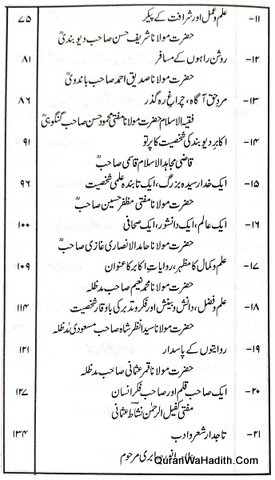 ۱۱- علم و عمل اور شرافت کے پیکر ۷۵
حضرت مولانا شریف حسن صاحب دیوبندیؒ
۱۲- روشن راہوں کے مسافر ۸۱
حضرت مولانا صدیق احمد صاحب باندویؒ
۱۳- مردِ حق آگاہ، چراغِ رہ گذر ۸۶
فقیہ الاسلام حضرت مولانا مفتی محمود حسن صاحب گنگوہیؒ
۱۴- اکابرِ دیوبند کی شخصیت کا پرتو ۹۱
قاضی مجاہد الاسلام قاسمی صاحبؒ
۱۵- ایک خدا رسیدہ بزرگ، ایک تابندہ علمی شخصیت ۹۶
حضرت مولانا مفتی مظفر حسین صاحبؒ
۱۶- ایک عالم، ایک دانشور، ایک صحافی ۱۰۰
حضرت مولانا حامد الانصاری غازی صاحبؒ
۱۷- علم و کمال کا مظہر، روایاتِ اکابر کا عنوان ۱۰۹
حضرت مولانا محمد نعیم صاحب مدظلہ
۱۸- علم و فضل، دانش و بینش اور فکر و تدبر کی باوقار شخصیت ۱۱۴
حضرت مولانا سید انظر شاہ صاحب مسعودی مدظلہ
۱۹- روایتوں کے پاسدار ۱۲۱
حضرت مولانا قمر عثمانی صاحب مدظلہ
۲۰- ایک صاحبِ قلم اور صاحبِ فکر انسان ۱۲۷
مفتی کفیل الرحمٰن نشاط عثمانی
۲۱- تاجدارِ شعر و ادب ۱۳۴
انور صابری مرحوم
QuranWaHadith.Com